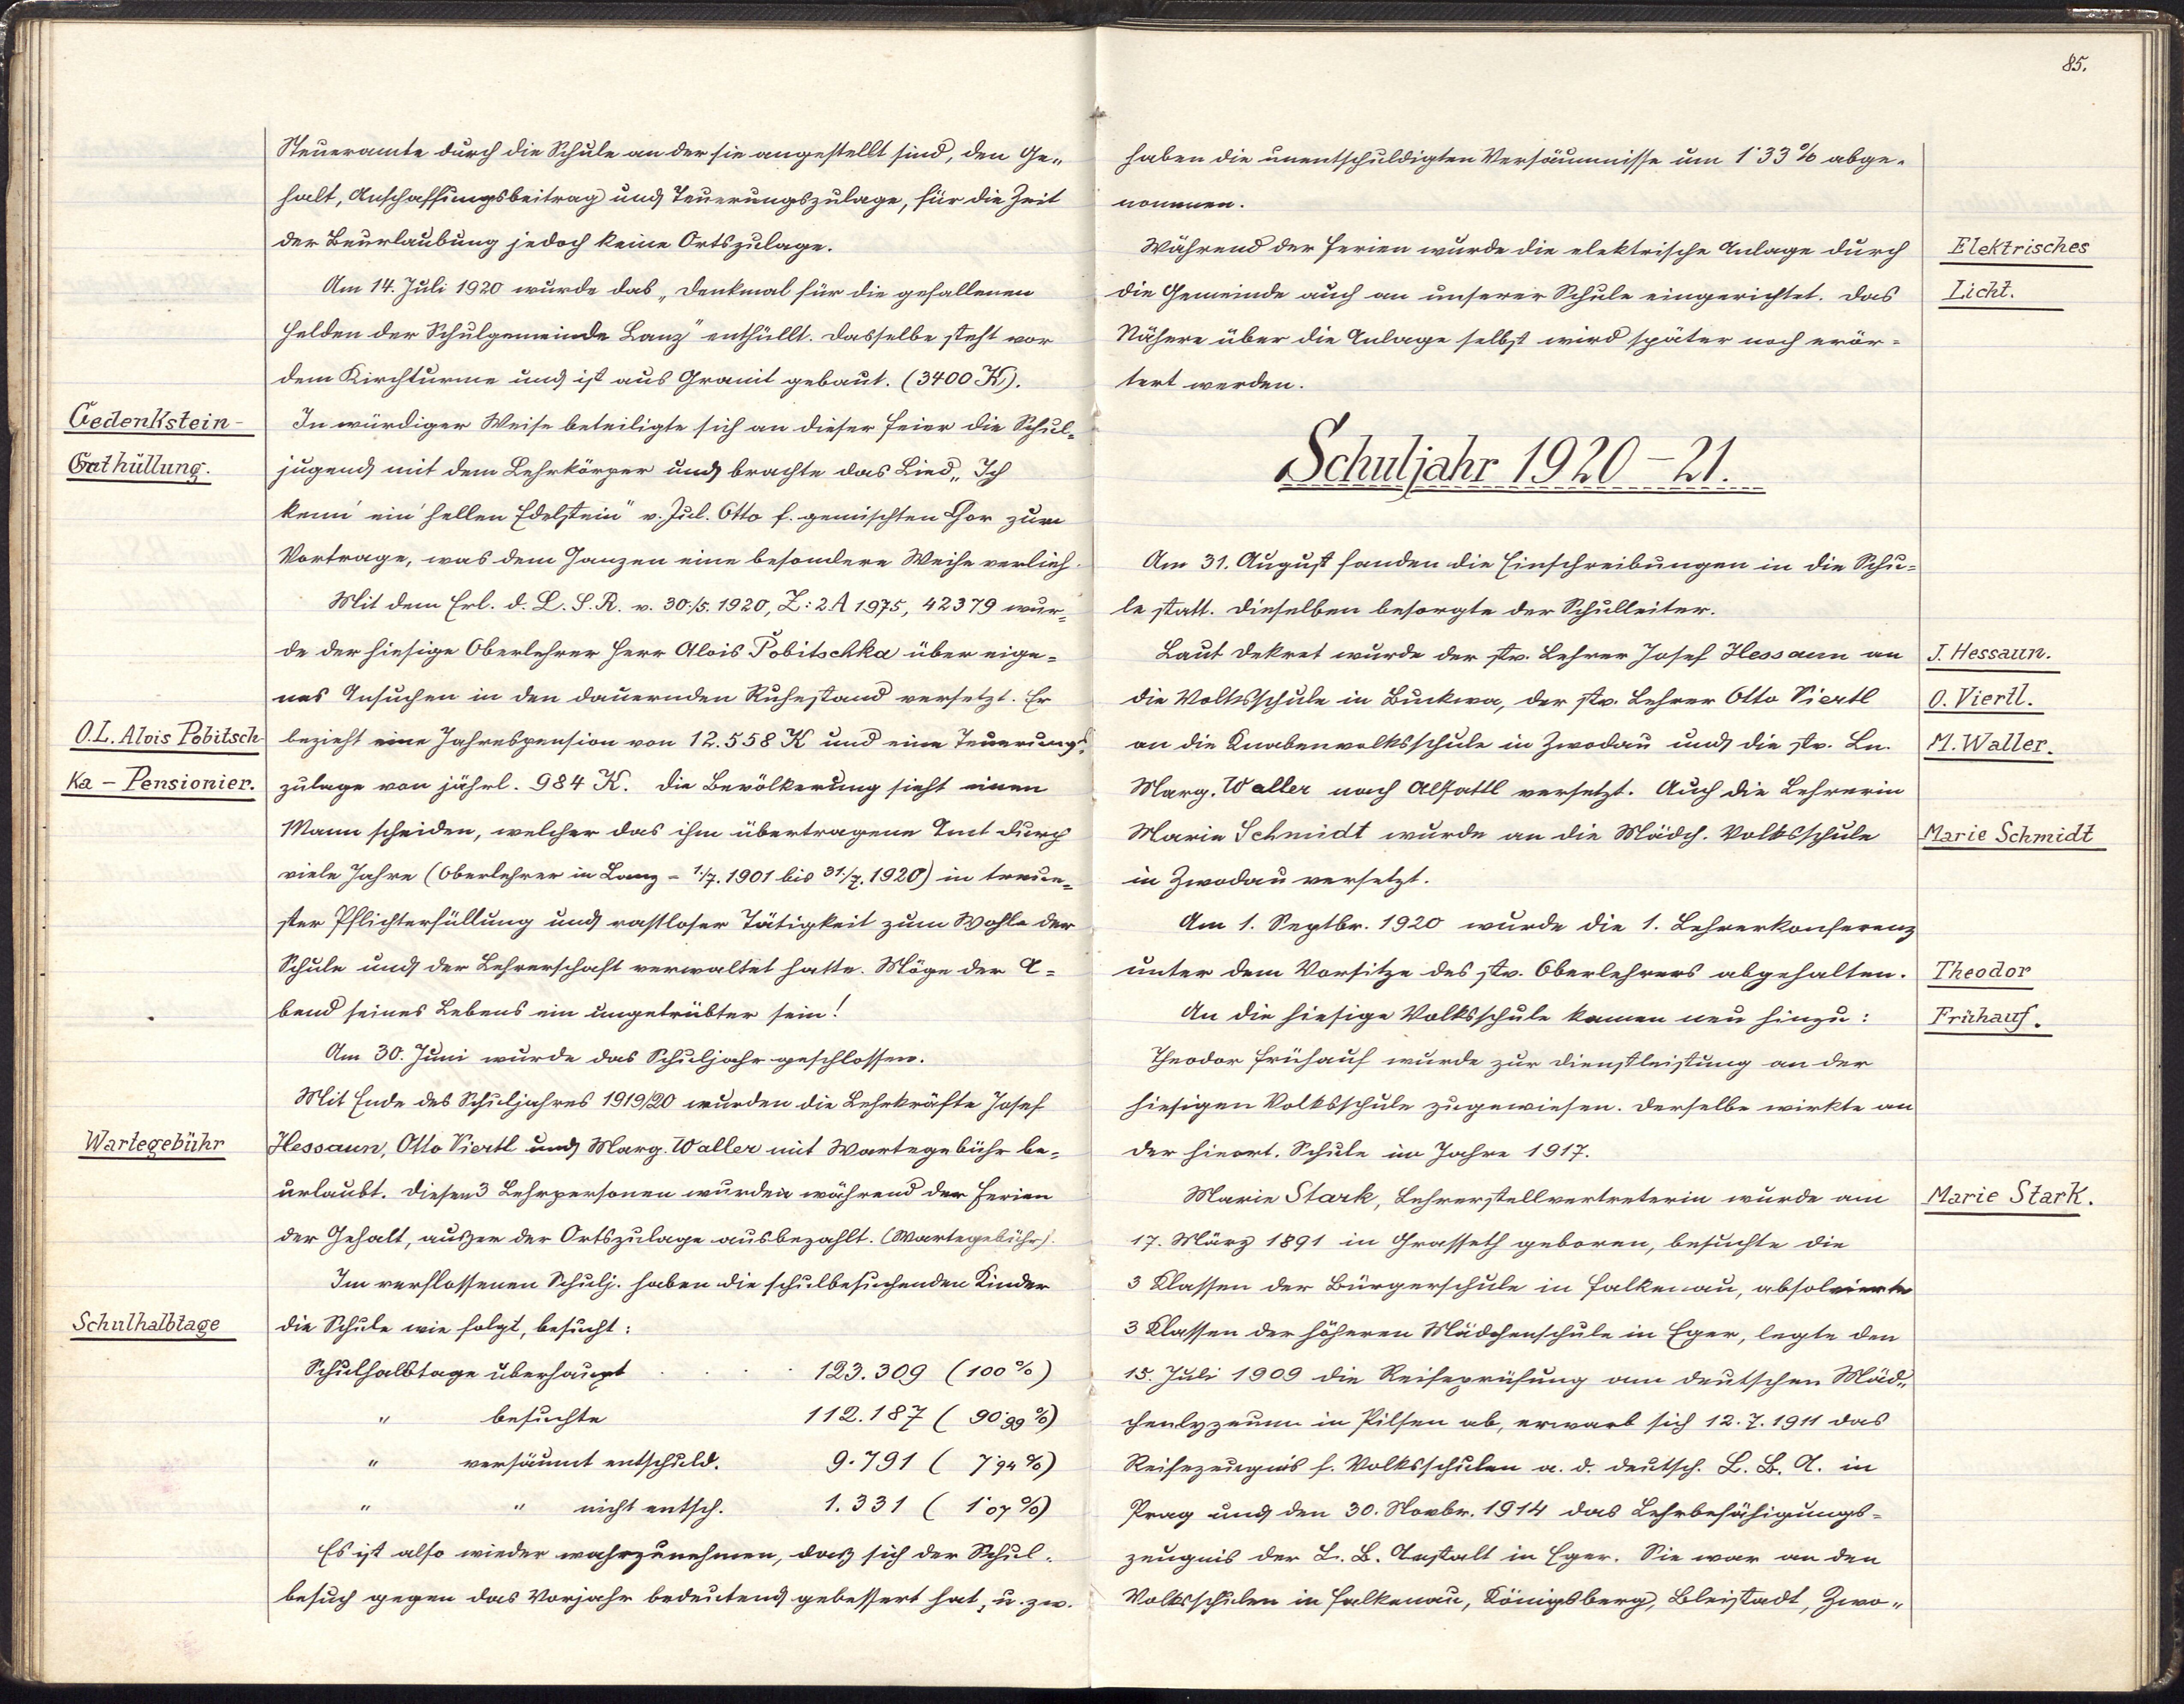 85.
Steueramte durch die Schule an der sie angestellt sind, den Ge„
halt, Anschaffungsbeitrag und Teuerungszulage, für die Zeit
der Beurlaubung jedoch keine Ortszulage.
Am 14. Juli 1920 wurde das „Denkmal für die gefallenen
Helden der Schulgemeinde Lanz" enthüllt. Dasselbe steht vor
dem Kirchturme und ist aus Granit gebaut. (3400 K).
Gedenkstein-
In würdiger Weise beteiligte sich an dieser Feier die Schul-
Enthüllung.
jugend mit dem Lehrkörper und brachte das Lied „Ich
kenn' ein' hellen Edelstein" v. Jul. Otto f. gemischten Chor zum
Vortrage, was dem Ganzen eine besondere Weihe verlieh.
Mit dem Erl. d. L. S. R. v. 30./5. 1920, Z: 2A 1975, 42379 wur-
de der hiesige Oberlehrer Herr Alois Pobitschka über eige-
nes Ansuchen in den dauernden Ruhestand versetzt. Er
O.L. Alois Pobitsch-
bezieht eine Jahrespension von 12.558 K und eine Teuerungs-
ka - Pensionier.
zulage von jährl. 984 K. Die Bevölkerung sieht einen
Mann scheiden, welcher das ihm übertragene Amt durch
viele Jahre (Oberlehrer in Lanz - 1./7. 1901 bis 31./7. 1920) in treue-
ster Pflichterfüllung und rastloser Tätigkeit zum Wohle der
Schule und der Lehrerschaft verwaltet hatte. Möge der A-
bend seines Lebens ein ungetrübter sein!
Am 30. Juni wurde das Schuljahr geschlossen.
Mit Ende des Schuljahres 1919/20 wurden die Lehrkräfte Josef
Wartegebühr
Hessaun, Otto Viertl und Marg. Waller mit Wartegebühr be-
urlaubt. Diesen 3 Lehrpersonen wurden während der Ferien
der Gehalt, außer der Ortszulage ausbezahlt. (Wartegebühr).
Im verflossenen Schulj. haben die schulbesuchenden Kinder
Schulhalbtage
die Schule wie folgt, besucht:
Schulhalbtage überhaupt . . . . 123.309 (100%)
" besuchte 112.187 (90·99%)
" versäumt entschuld. 9.791 (7·94%)
" " nicht entsch. 1.331 (1·07%)
Es ist also wieder wahrzunehmen, daß sich der Schul-
besuch gegen das Vorjahr bedeutend gebessert hat, u. zw.
haben die unentschuldigten Versäumnisse um 1·33% abge-
nommen.
Während der Ferien wurde die elektrische Anlage durch
Elektrisches
die Gemeinde auch an unserer Schule eingerichtet. Das
Licht.
Nähere über die Anlage selbst wird später noch erör-
tert werden.
Schuljahr 1920-21.
Am 31. August fanden die Einschreibungen in die Schu-
le statt. Dieselben besorgte der Schulleiter.
Laut Dekret wurde der stv. Lehrer Josef Hessaun an
J. Hessaun.
die Volksschule in Buckwa, der stv. Lehrer Otto Viertl
O. Viertl.
an die Knabenvolksschule in Zwodau und die stv. Ln.
M. Waller.
Marg. Waller nach Altsattl versetzt. Auch die Lehrerin
Marie Schmidt wurde an die Mädch. Volksschule
Marie Schmidt
in Zwodau versetzt.
Am 1. Septbr. 1920 wurde die 1. Lehrerkonferenz
unter dem Vorsitze des stv. Oberlehrers abgehalten.
Theodor
An die hiesige Volksschule kamen neu hinzu:
Frühauf.
Theodor Frühauf wurde zur Dienstleistung an der
hiesigen Volksschule zugewiesen. Derselbe wirkte an
der hierort. Schule im Jahre 1917.
Marie Stark, Lehrerstellvertreterin wurde am
Marie Stark.
17. März 1891 in Grasseth geboren, besuchte die
3 Klassen der Bürgerschule in Falkenau, absolvierte
3 Klassen der höheren Mädchenschule in Eger, legte den
15. Juli 1909 die Reifeprüfung am deutschen Mäd„
chenlyzeum in Pilsen ab, erwarb sich 12.7.1911 das
Reifezeugnis f. Volksschulen a. d. deutsch. L. B. A. in
Prag und den 30. Novbr. 1914 das Lehrbefähigungs-
zeugnis der L. B. Anstalt in Eger. Sie war an den
Volksschulen in Falkenau, Königsberg, Bleistadt, Zwo„